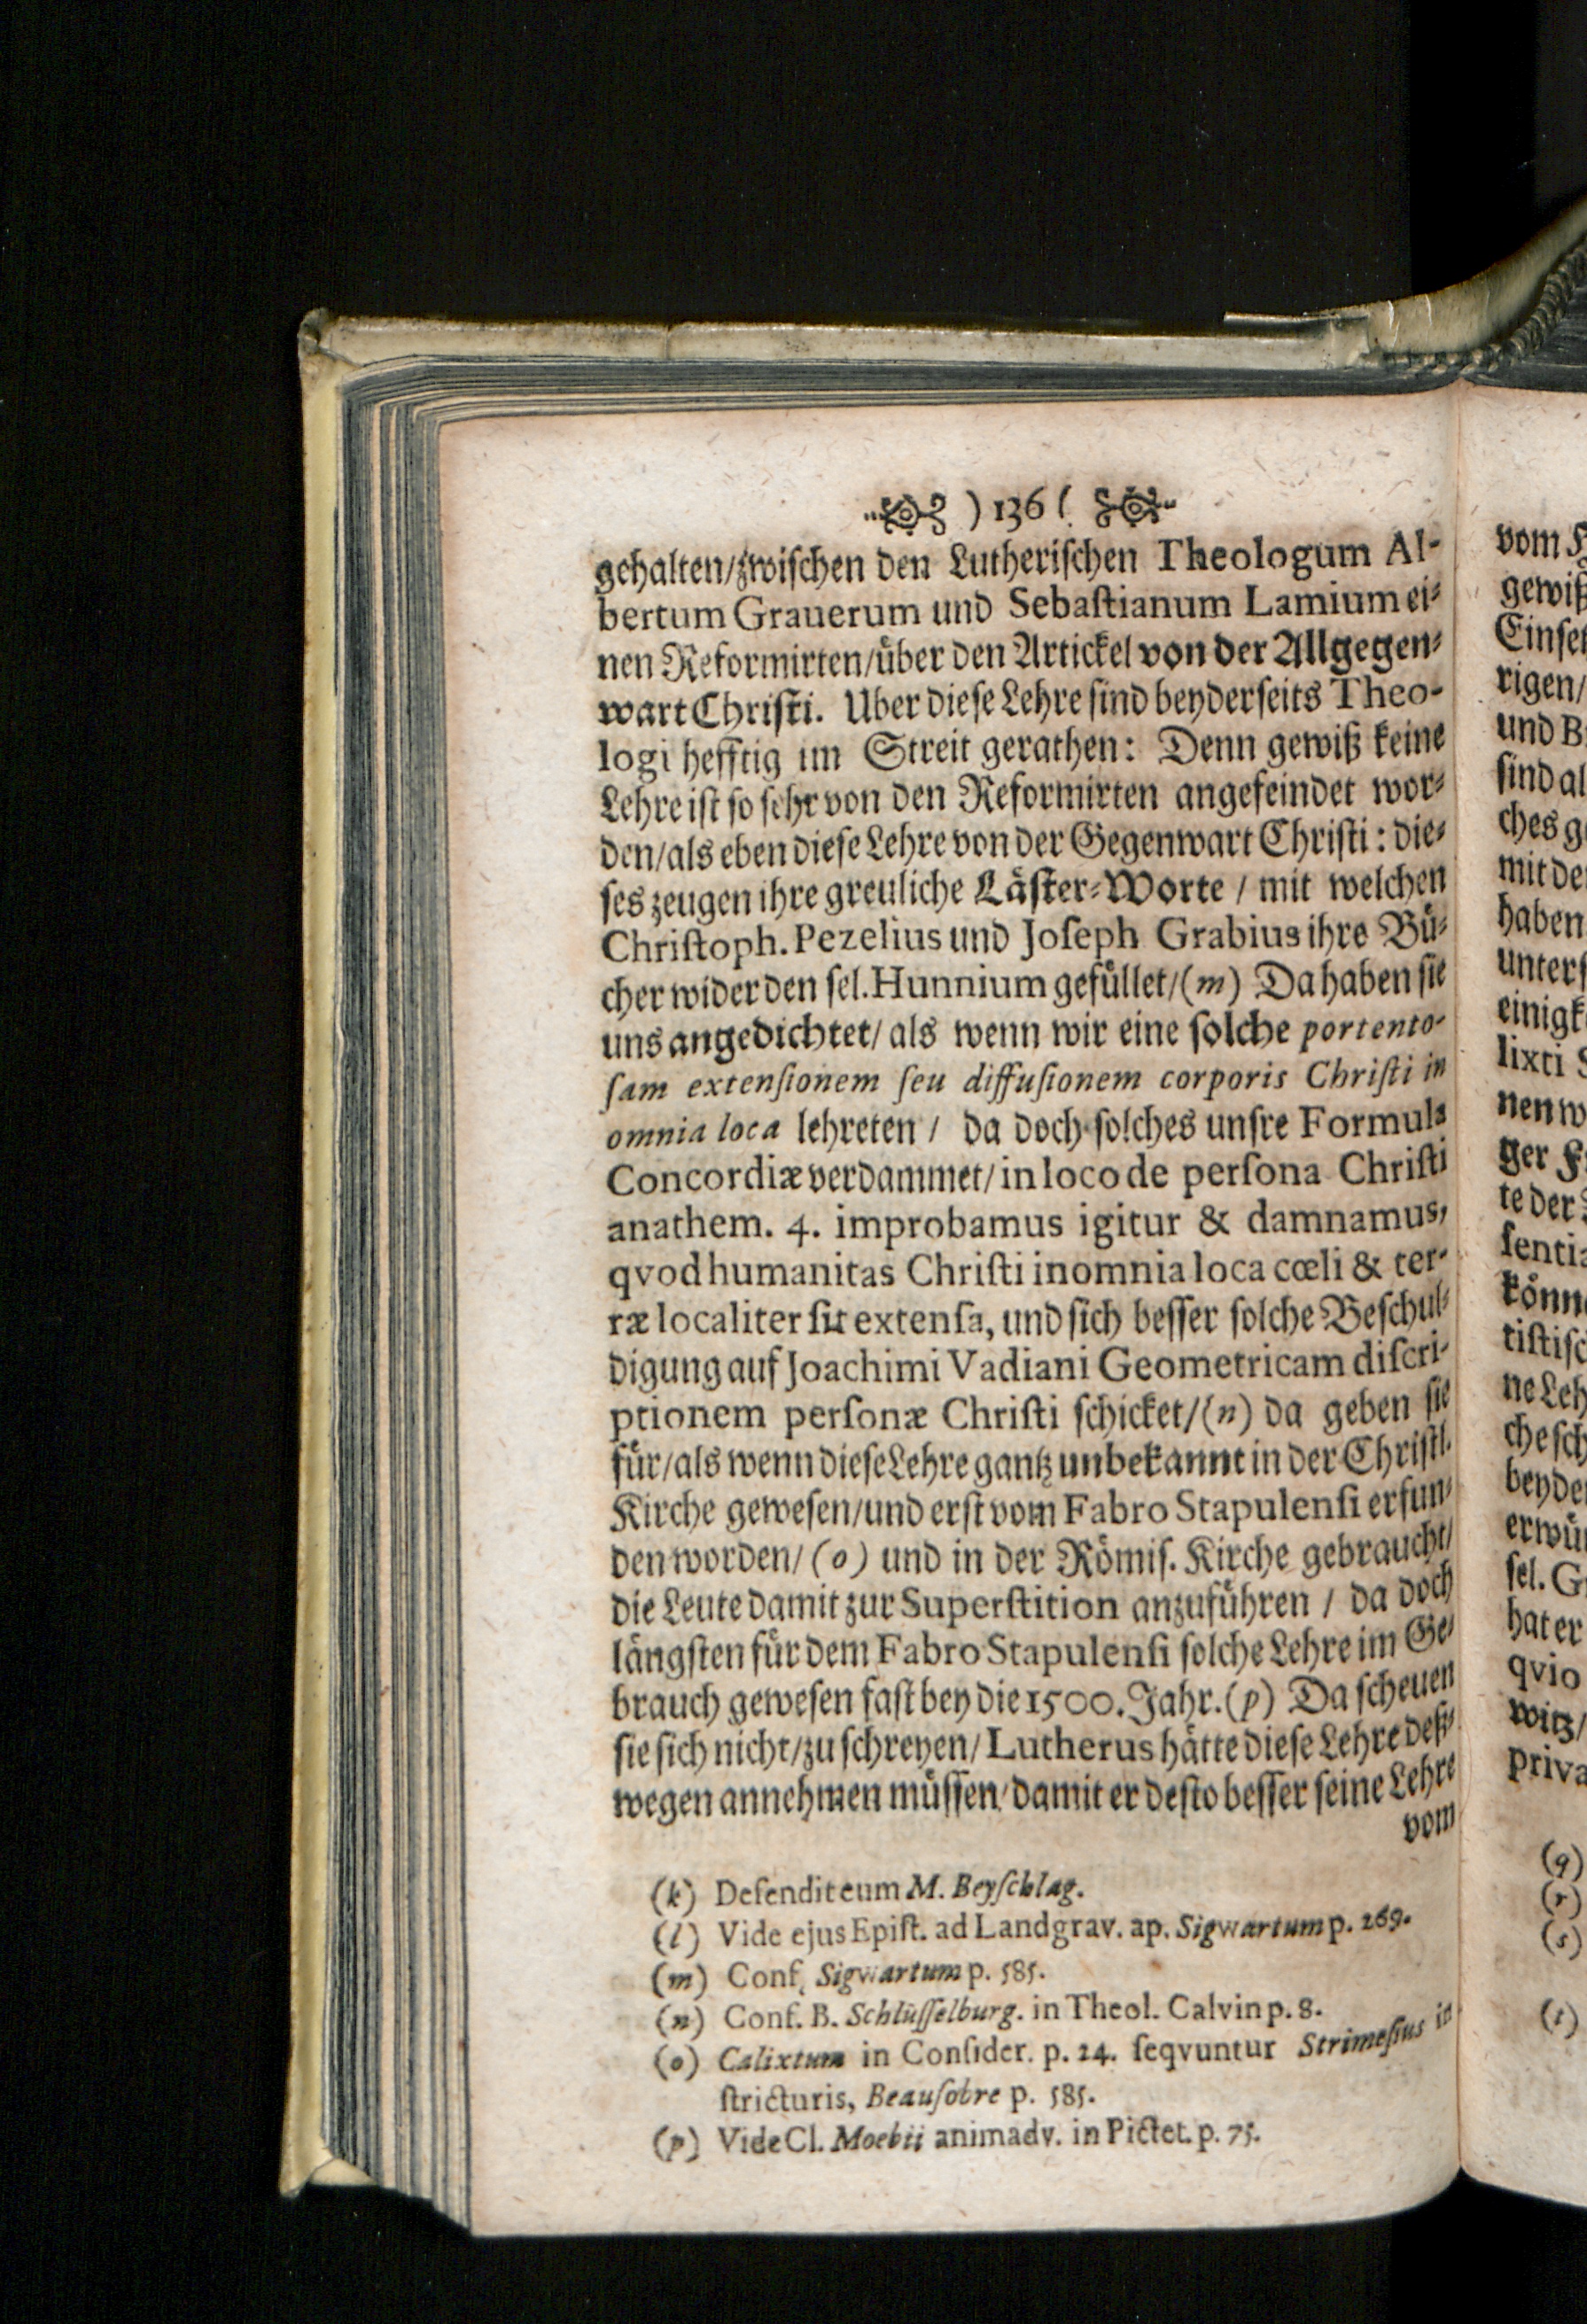 ) 136 (
gehalten/zwischen den Lutherischen Theologum Al-
bertum Grauerum und Sebaſtianum Lamium ei-
nen Reformirten/über den Artickel von der Allgegen-
wart Christi. Uber diese Lehre sind beyderseits Theo-
logi hefftig im Streit gerathen: Denn gewiß keine
Lehre ist so sehr von den Reformirten angefeindet wor-
den/als eben diese Lehre von der Gegenwart Christi: die-
ses zeugen ihre greuliche Läster-Worte / mit welchen
Chriſtoph. Pezelius und Joſeph Grabius ihre Bü-
cher wider den sel. Hunnium gefüllet/(m) Da haben sie
uns angedichtet/ als wenn wir eine solche portento-
ſam extenſionem ſeu diffuſionem corporis Chriſti in
omnia loca lehreten / da doch solches unsre Formula
Concordiæ verdammet/ in loco de perſona Chriſti
anathem. 4. improbamus igitur & damnamus,
qvod humanitas Chriſti in omnia loca cœli & ter-
ræ localiter ſit extenſa, und sich besser solche Beschul-
digung auf Joachimi Vadiani Geometricam diſcri-
ptionem perſonæ Chriſti schicket/(n) da geben sie
für/als wenn diese Lehre gantz unbekannt in der Christl.
Kirche gewesen/und erst vom Fabro Stapulenſi erfun-
den worden/ (o) und in der Römis. Kirche gebraucht/
die Leute damit zur Superſtition anzuführen / da doch
längsten für dem Fabro Stapulenſi solche Lehre im Ge-
brauch gewesen fast bey die 1500. Jahr. (p) Da scheuen
sie sich nicht/zu schreyen/ Lutherus hätte diese Lehre deß-
wegen annehmen müssen/ damit er desto besser seine Lehre
vom
(k) Defendit eum M. Beyſchlag.
(l) Vide ejus Epiſt. ad Landgrav. ap. Sigwartum p. 269.
(m) Conf. Sigwartum p. 585.
(n) Conf. B. Schlüſſelburg. in Theol. Calvin p. 8.
(o) Calixtum in Conſider. p. 24. ſeqvuntur Strimeſius in
ſtricturis, Beauſobre p. 585.
(p) Vide Cl. Moebii animadv. in Pictet. p. 75.
vom
gewiß
rigen/
und
sind
mit
haben
lixti
ger
te der
tistisc
ne Leh
che sch
sel.
hat er
qvio
witz/
priva
(q)
(r)
(s)
(t)